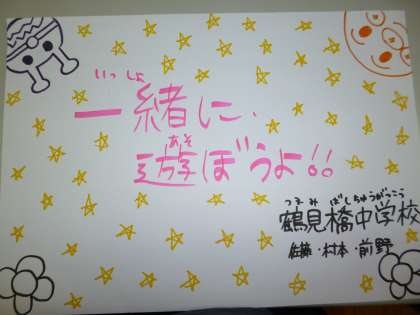 いっしょ
一緒に、
あそ
遊ぼうよ!!
つるみばしちゅうがっこう
鶴見橋中学校
佐藤・村本・前野